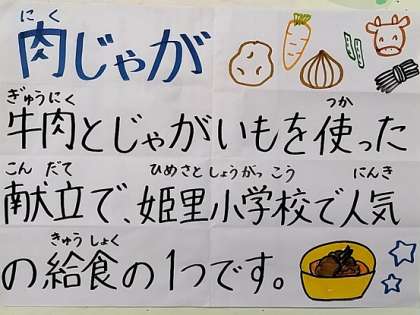 にく
肉じゃが
ぎゅうにく つか
牛肉とじゃがいもを使った
こんだて ひめさとしょうがっこう にんき
献立で、姫里小学校で人気
きゅうしょく
の給食の1つです。